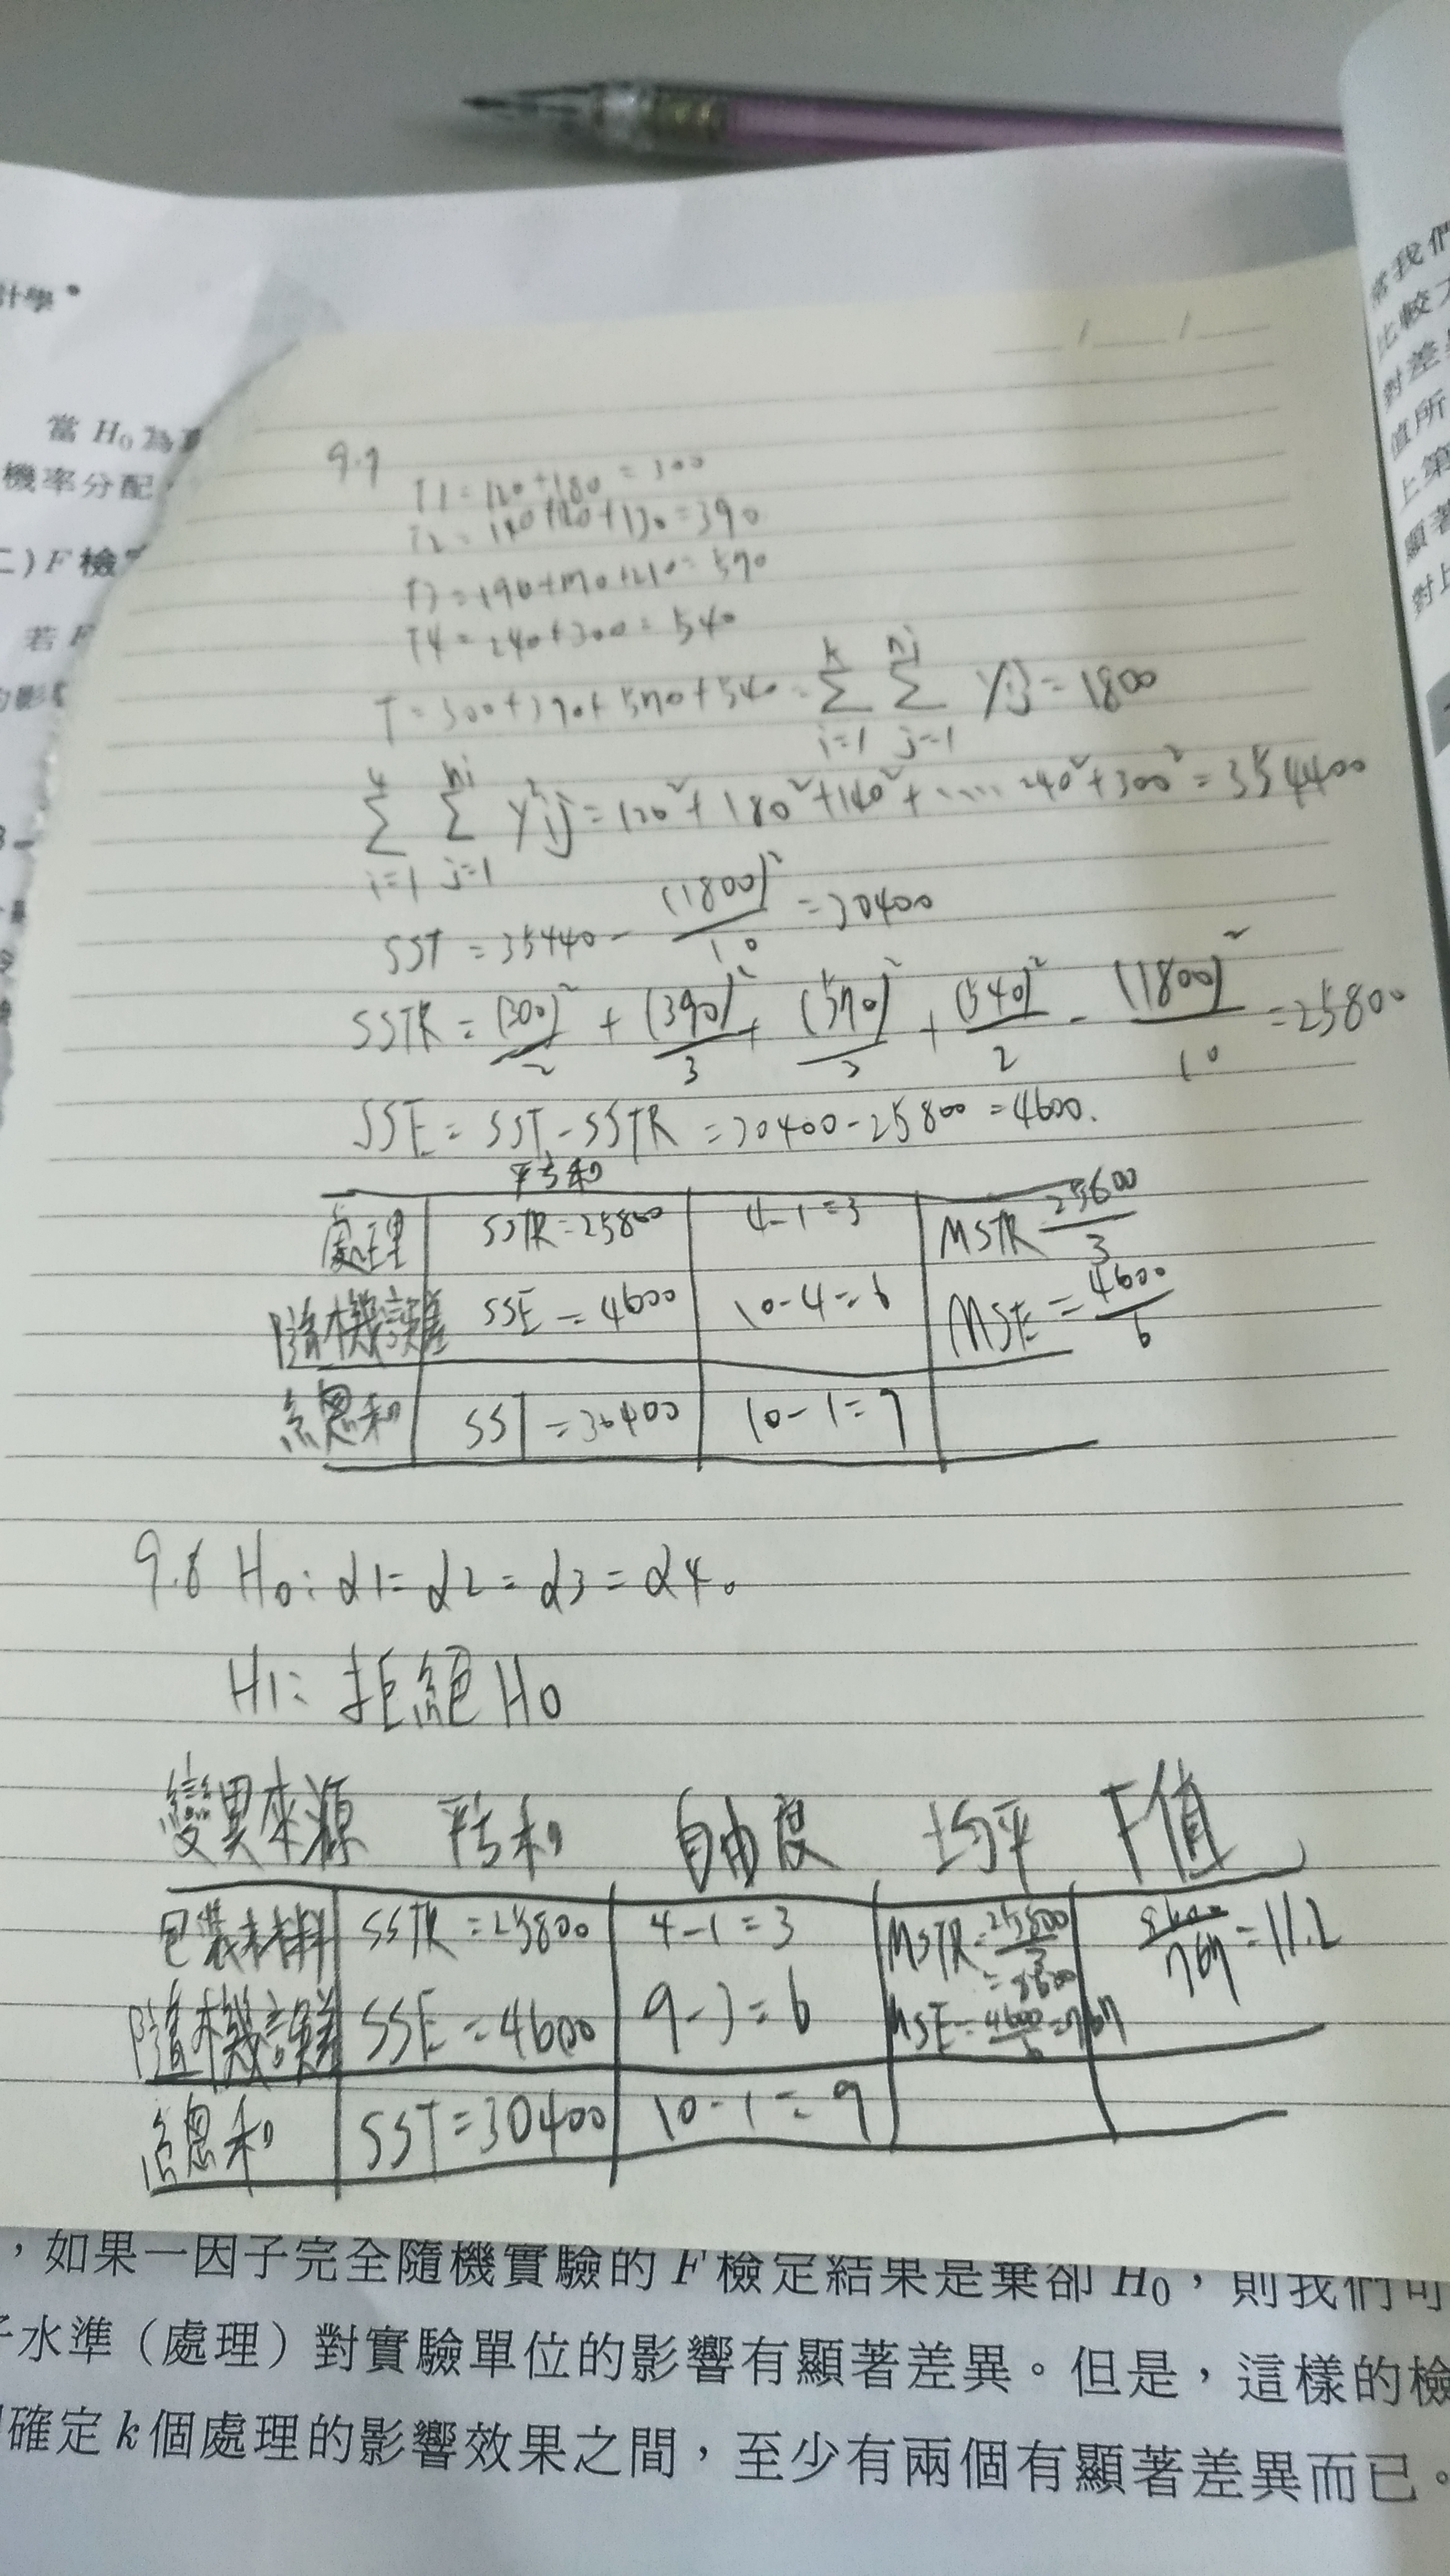 計學
當 H₀ 為
機率分配
二)F 檢
若 F
的影
當我們
比較
對差
值所
上第
顯著
對比
9.7
T1=120+180=300
T2=140+120+130=390
T3=190+170+210=570
T4=240+300=540
T=300+390+570+540=Σ(i=1, k) Σ(j=1, nj) yij=1800
Σ(i=1, k) Σ(j=1, ni) y²ij=120²+180²+140²+....240²+300²=354400
SST=35440-(1800)²/10=30400
SSTR=(300)²/2+(390)²/3+(570)²/3+(540)²/2-(1800)²/10=25800
SSE=SST-SSTR=30400-25800=4600.
平方和
處理 SSTR=25800 4-1=3 MSTR 25600/3
隨機誤差 SSE=4600 10-4=6 MSE=4600/6
總和 SST=30400 10-1=9
9.8 H₀:α1=α2=α3=α4。
H1:拒絕H0
變異來源 平方和 自由度 均平 F值
包裝材料 SSTR=25800 4-1=3 MSTR=25800/3=8600 8600/767=11.2
隨機誤差 SSE=4600 9-3=6 MSE=4600/6=767
總和 SST=30400 10-1=9
,如果一因子完全隨機實驗的 F 檢定結果是棄卻 H₀,則我們可
子水準(處理)對實驗單位的影響有顯著差異。但是,這樣的檢
確定 k 個處理的影響效果之間,至少有兩個有顯著差異而已。